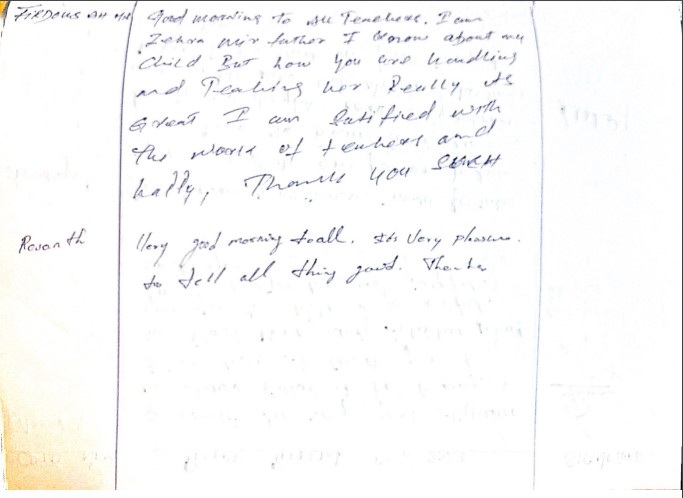 Firdous Good morning to All Teachers. I am
Zehra mir father I know about my
Child But how you are handling
and Teaching her Really Is
Great I am Satified with
the work of teachers and
Thank you
Revanth Very good morning to all. Its Very pleasure.
to tell all thing good. Thanks